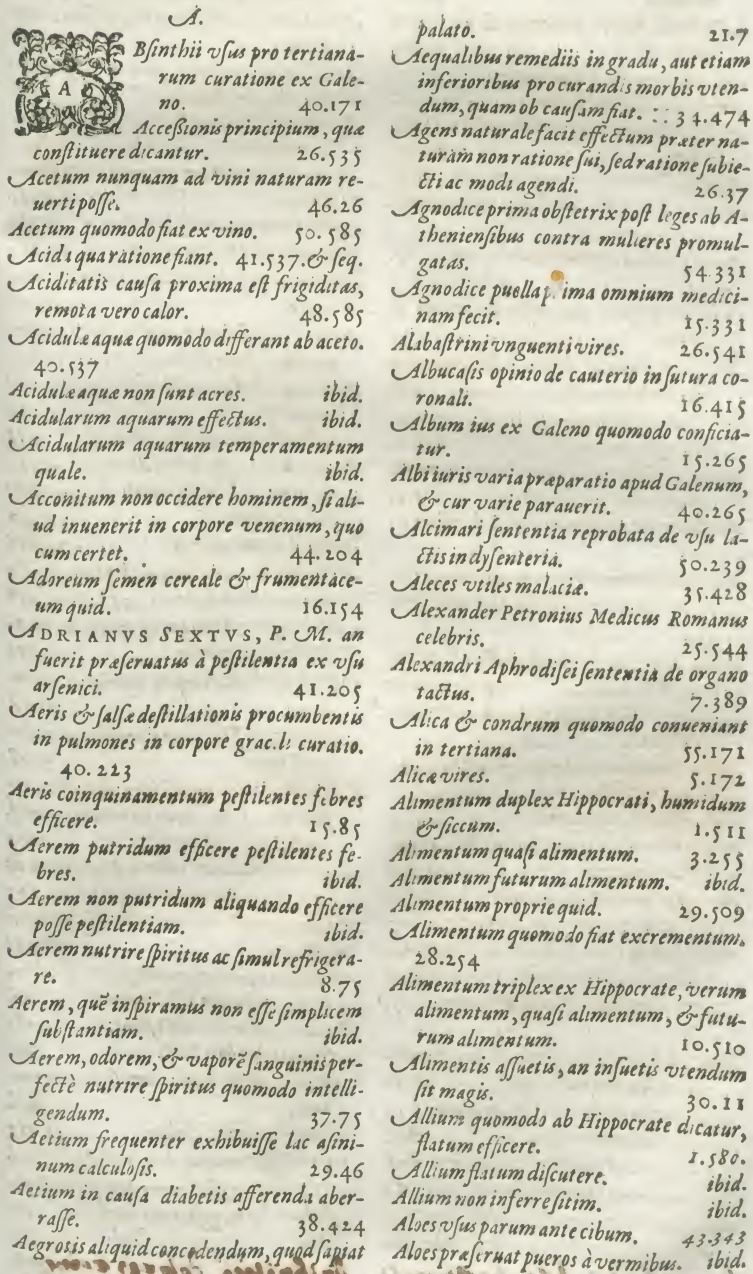 A.
ABſinthii vſus pro tertiana-
rum curatione ex Gale-
no. 40.171
Acceßionis principium, quæ
conſtituere dicantur. 26.535
Acetum nunquam ad vini naturam re-
uerti poſſe. 46.26
Acetum quomodo fiat ex vino. 50.585
Acida qua ratione fiant. 41.537.& ſeq.
Aciditatis cauſa proxima eſt frigiditas,
remota vero calor. 48.585
Acidulæ aquæ quomodo differant ab aceto.
40.537
Acidulæ aquæ non ſunt acres. ibid.
Acidularum aquarum effectus. ibid.
Acidularum aquarum temperamentum
quale. ibid.
Acconitum non occidere hominem, ſi ali-
ud inuenerit in corpore venenum, quo
cum certet. 44.204
Adoreum ſemen cereale & frumentace-
um quid. 16.154
ADRIANVS SEXTVS, P. M. an
fuerit præſeruatus à peſtilentia ex vſu
arſenici. 41.205
Aeris & ſalſæ deſtillationis procumbentis
in pulmones in corpore grac.li curatio.
40.223
Aeris coinquinamentum peſtilentes febres
efficere. 15.85
Aerem putridum efficere peſtilentes fe-
bres. ibid.
Aerem non putridum aliquando efficere
poſſe peſtilentiam. ibid.
Aerem nutrire ſpiritus ac ſimul refrigera-
re. 8.75
Aerem, quẽ inſpiramus non eſſe ſimplicem
ſubſtantiam. ibid.
Aerem, odorem, & vaporẽ ſanguinis per-
fectè nutrire ſpiritus quomodo intelli-
gendum. 37.75
Aetium frequenter exhibuiſſe lac aſini-
num calculoſis. 29.46
Aetium in cauſa diabetis afferenda aber-
raſſe. 38.424
Aegrotis aliquid concedendum, quod ſapiat
palato. 21.7
Aequalibus remediis in gradu, aut etiam
inferioribus pro curandis morbis vten-
dum, quam ob cauſam fiat. :: 34.474
Agens naturale facit effectum præter na-
turam non ratione ſui, ſed ratione ſubie-
cti ac modi agendi. 26.37
Agnodice prima obſtetrix poſt leges ab A-
thenienſibus contra mulieres promul-
gatas. 54.331
Agnodice puella p.ima omnium medici-
nam fecit. 15.331
Alabaſtrini vnguenti vires. 26.541
Albucaſis opinio de cauterio in ſutura co-
ronali. 16.415
Album ius ex Galeno quomodo conficia-
tur. 15.265
Albi iuris varia præparatio apud Galenum,
& cur varie parauerit. 40.265
Alcimari ſententia reprobata de vſu la-
ctis in dyſenteria. 50.239
Aleces vtiles malaciæ. 35.428
Alexander Petronius Medicus Romanus
celebris. 25.544
Alexandri Aphrodiſei ſententia de organo
tactus. 7.389
Alica & condrum quomodo conueniant
in tertiana. 55.171
Alicæ vires. 5.172
Alimentum duplex Hippocrati, humidum
& ſiccum. 1.511
Alimentum quaſi alimentum. 3.255
Alimentum futurum alimentum. ibid.
Alimentum proprie quid. 29.509
Alimentum quomodo fiat excrementum.
28.254
Alimentum triplex ex Hippocrate, verum
alimentum, quaſi alimentum, & futu-
rum alimentum. 10.510
Alimentis aſſuetis, an inſuetis vtendum
ſit magis. 30.11
Allium quomodo ab Hippocrate dicatur,
flatum efficere. 1.580.
Allium flatum diſcutere. ibid.
Allium non inferre ſitim. ibid.
Aloes vſus parum ante cibum. 43.343
Aloes præſeruat pueros à vermibus. ibid.